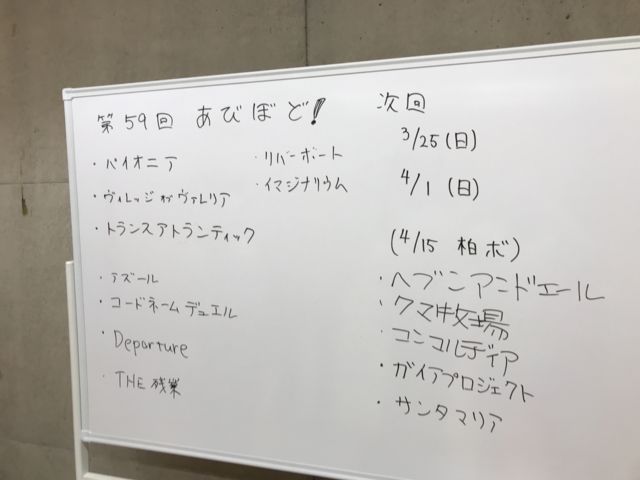 第59回 あびぼど!
・パイオニア
・ヴィレッジオブヴァレリア
・トランスアトランティック
・アズール
・コードネームデュエル
・Departure
・THE 残業
・リバーボート
・イマジナリウム
次回
3/25(日)
4/1(日)
(4/15 柏ボ)
・ヘブンアンドエール
・クマ牧場
・コンコルディア
・ガイアプロジェクト
・サンタマリア